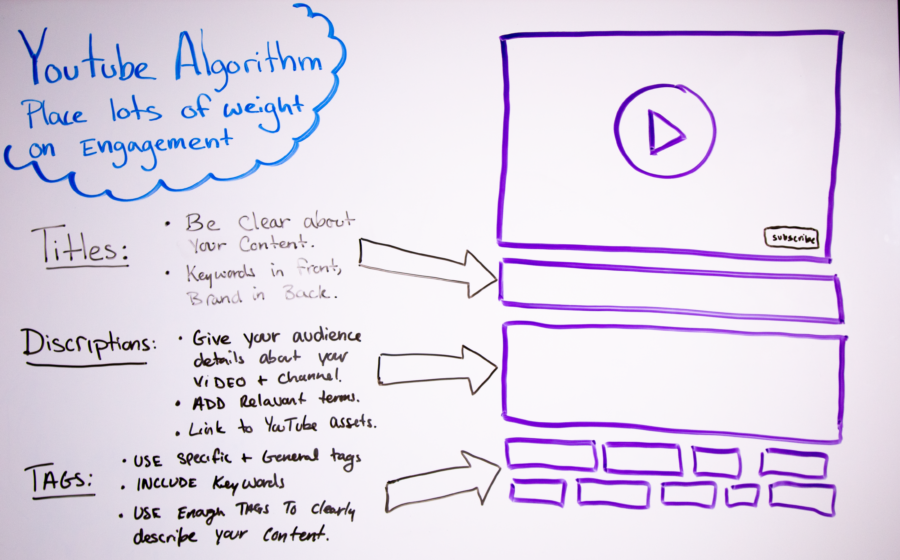 Youtube Algorithm
Place lots of weight
on Engagement
subscribe
Titles:
• Be Clear about
Your Content.
• Keywords in Front,
Brand in Back.
Discriptions:
• Give your audience
details about your
ViDEO + Channel.
• ADD Relavant terms.
• Link to YouTube assets.
TAGS:
• USE Specific + General tags
• INCLUDE Keywords
• USE Enough TAGS To clearly
describe your Content.